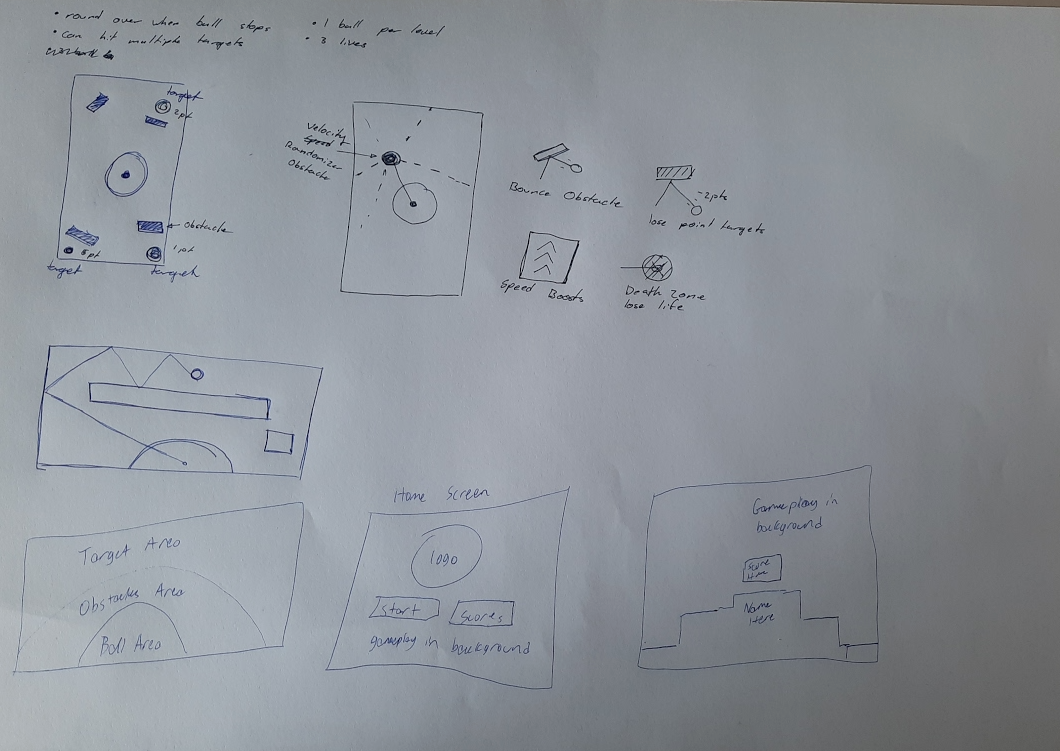 • round over when ball stops
• can hit multiple targets
• 1 ball per level
• 3 lives
target
2pt
Obstacle
5pt
1pt
target
target
Velocity
Speed
Randomizer
Obstacle
Bounce Obstacle
-2pts
lose point targets
Speed Boosts
Death Zone
lose life
Target Area
Obstacles Area
Ball Area
Home Screen
logo
Start
Scores
gameplay in background
Gameplay in
background
Score
Here
Name
Here